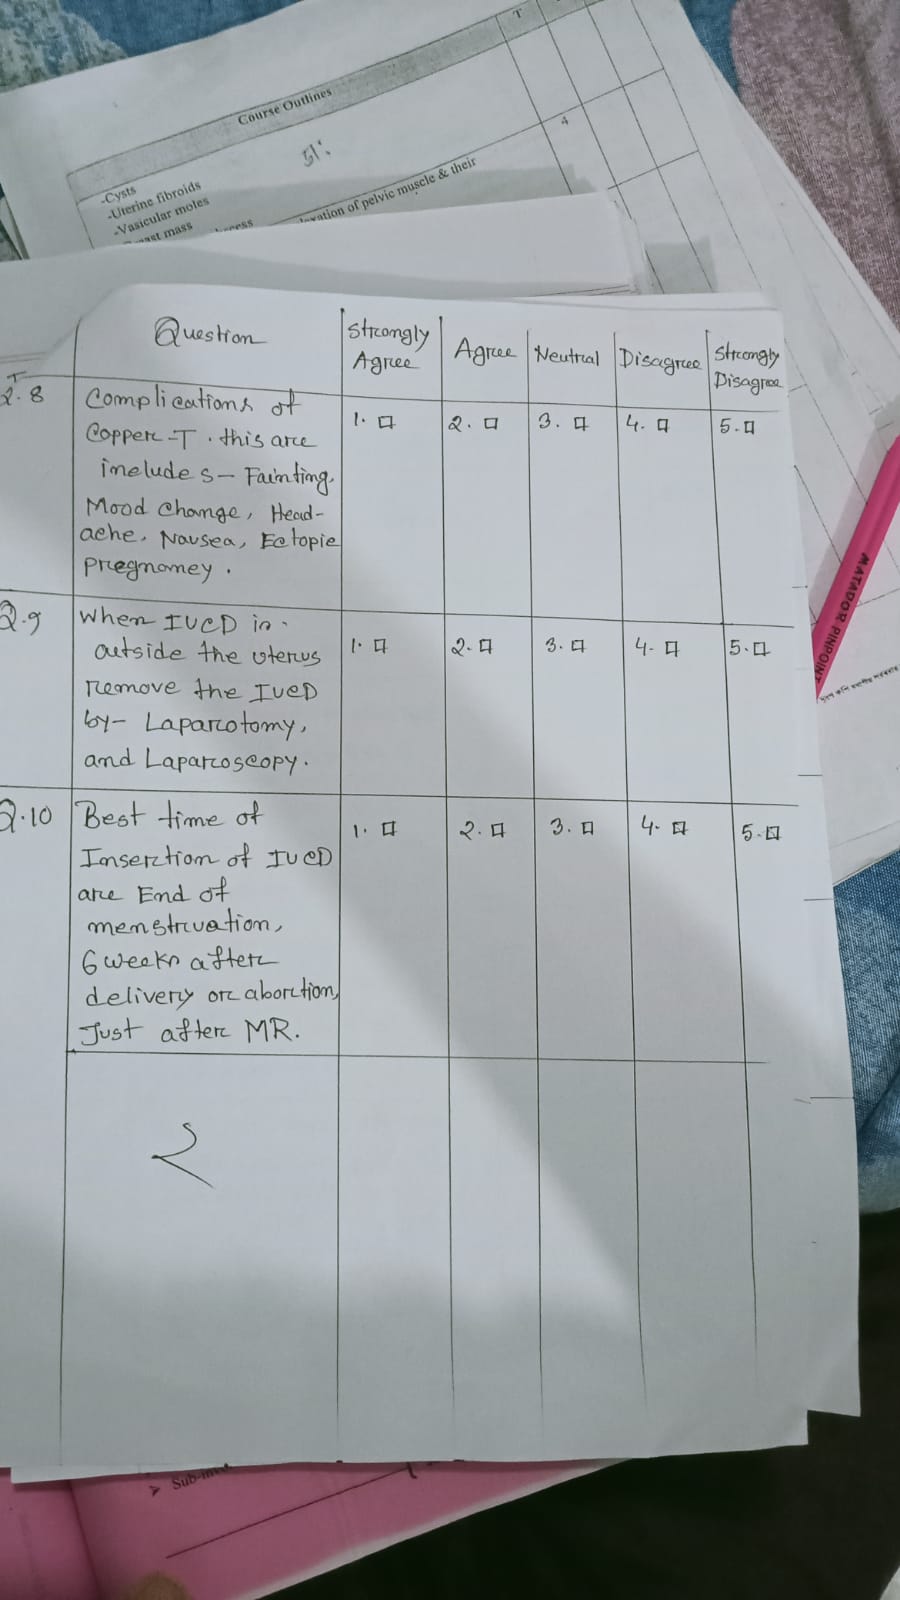 Course Outlines
T
4
-Cysts
-Uterine fibroids
-Vasicular moles
mass
of pelvic muscle & their
Question
Strongly Agree
Agree
Neutral
Disagree
Strongly Disagree
2.8
Complications of
Copper-T. this are
includes- Fainting,
Mood change, Head-
ache, Nausea, Ectopic
pregnancy.
1. □
2. □
3. □
4. □
5. □
Q.9
When IUCD is
outside the uterus
remove the IUCD
by- Laparotomy,
and Laparoscopy.
1. □
2. □
3. □
4. □
5. □
Q.10
Best time of
Insertion of IUCD
are End of
menstruation,
6 weeks after
delivery or abortion,
Just after MR.
1. □
2. □
3. □
4. □
5. □
২
MATADOR PINPOINT